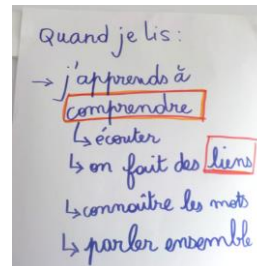 Quand je lis :
→ j'apprends à
comprendre
↳ écouter
↳ on fait des liens
↳ connaître les mots
↳ parler ensemble